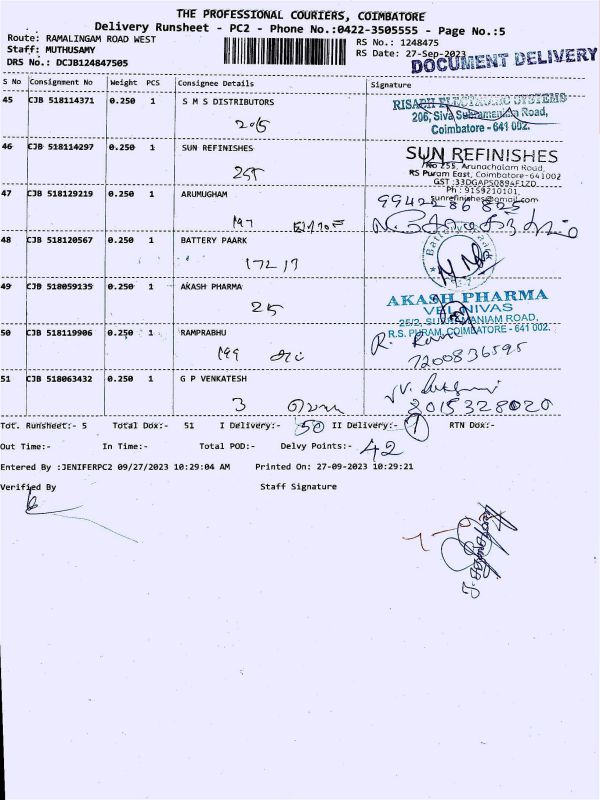 THE PROFESSIONAL COURIERS, COIMBATORE
Delivery Runsheet - PC2 - Phone No.:0422-3505555 - Page No.:5
Route: RAMALINGAM ROAD WEST
RS No.: 1248475
Staff: MUTHUSAMY
RS Date: 27-Sep-2023
DRS No.: DCJB124847505
DOCUMENT DELIVERY
S No Consignment No Weight PCS Consignee Details Signature
45 CJB 518114371 0.250 1 S M S DISTRIBUTORS
RISABH ELECTRONIC SYSTEMS
206, Siva Subramaniam Road,
Coimbatore - 641 002.
46 CJB 518114297 0.250 1 SUN REFINISHES
255
SUN REFINISHES
No 255, Arunachalam Road,
RS Puram East, Coimbatore-641002
Ph : 9159210101,
sunrefinishes@gmail.com
47 CJB 518129219 0.250 1 ARUMUGHAM
197
48 CJB 518120567 0.250 1 BATTERY PAARK
49 CJB 518059135 0.250 1 AKASH PHARMA
25
AKASH PHARMA
VEL NIVAS
25/2, SUBRAMANIAM ROAD,
R.S. PURAM, COIMBATORE - 641 002.
50 CJB 518119906 0.250 1 RAMPRABHU
199
7200836595
51 CJB 518063432 0.250 1 G P VENKATESH
3
8015328020
Tot. Runsheet:- 5 Total Dox:- 51 I Delivery:- 50 II Delivery:- 1 RTN Dox:-
Out Time:- In Time:- Total POD:- Delvy Points:- 42
Entered By :JENIFERPC2 09/27/2023 10:29:04 AM Printed On: 27-09-2023 10:29:21
Verified By Staff Signature